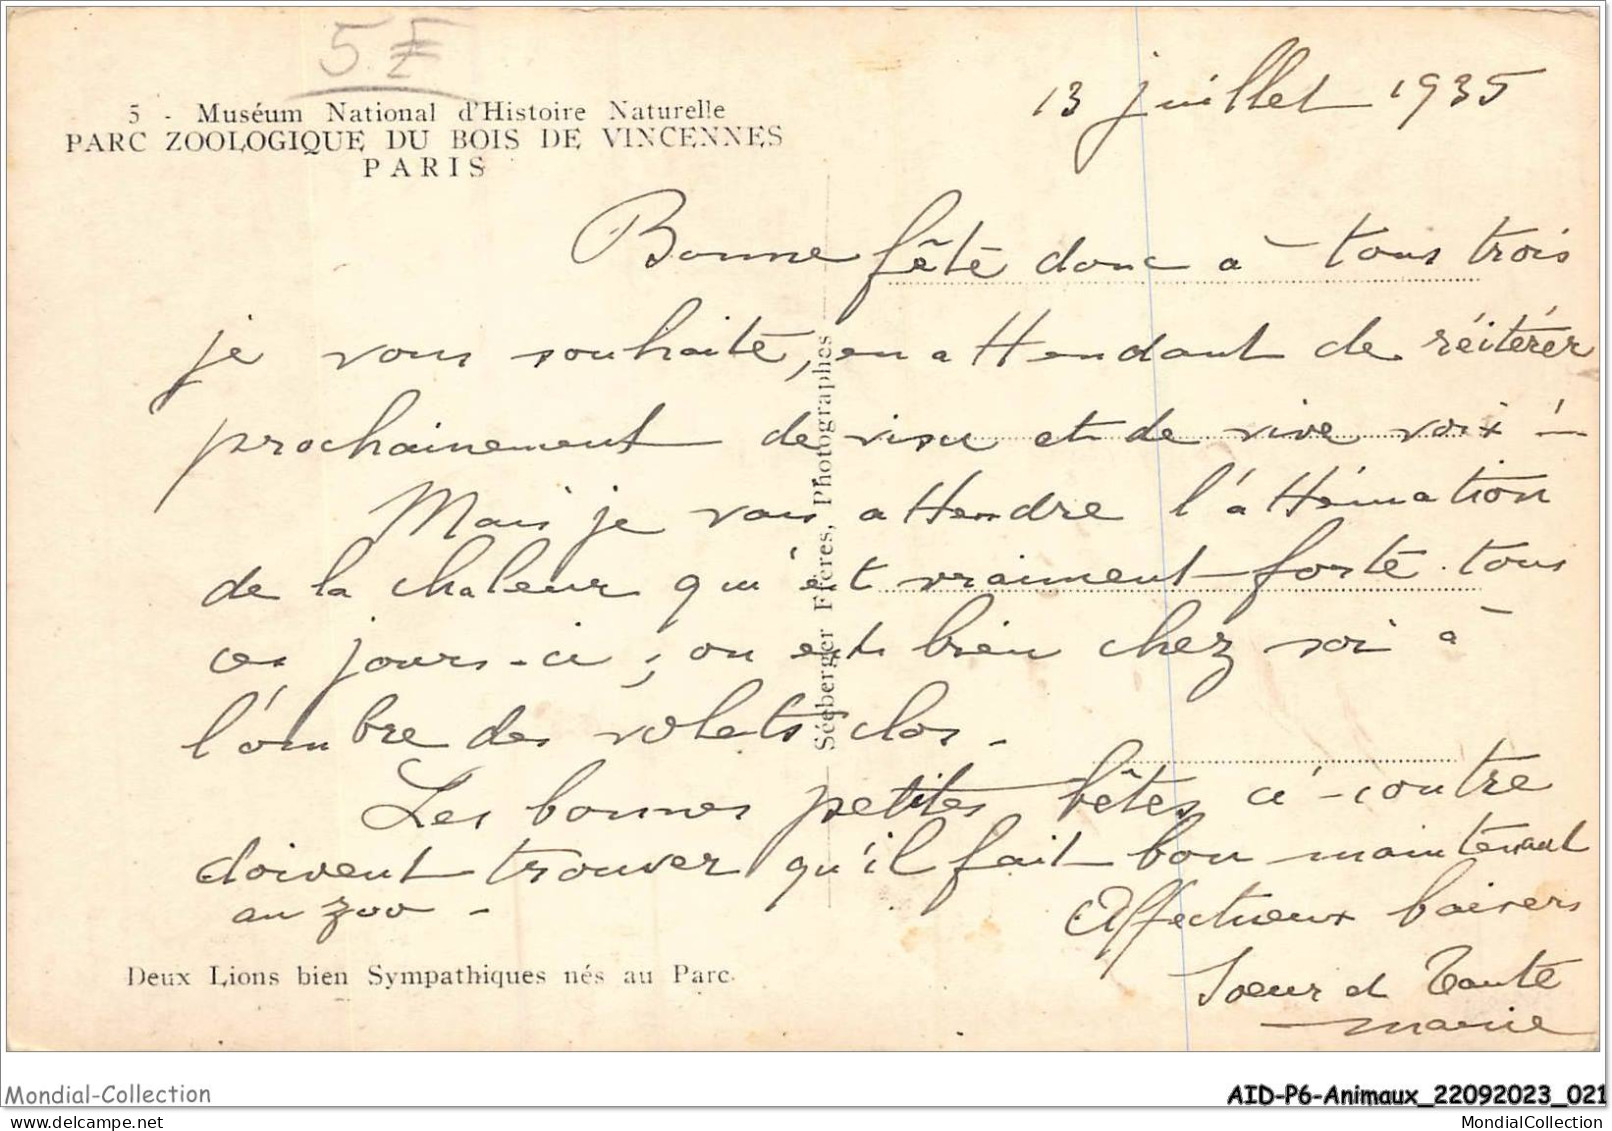 5 F
5 - Muséum National d'Histoire Naturelle
PARC ZOOLOGIQUE DU BOIS DE VINCENNES
PARIS
13 juillet 1935
Bonne fête donc à tous trois
je vous souhaite, en attendant de réitérer
prochainement de visu et de vive voix !
Mais je vais attendre l'atténuation
de la chaleur qui est vraiment forte tous
ces jours-ci ; on est bien chez soi à
l'ombre des volets clos.
Les bonnes petites bêtes ci-contre
doivent trouver qu'il fait bon maintenant
au zoo -
Affectueux baisers
Soeur et Tante
Marie
Séeberger Frères, Photographes
Deux Lions bien Sympathiques nés au Parc.
Mondial-Collection
AID-P6-Animaux_22092023_021
www.delcampe.net
MondialCollection